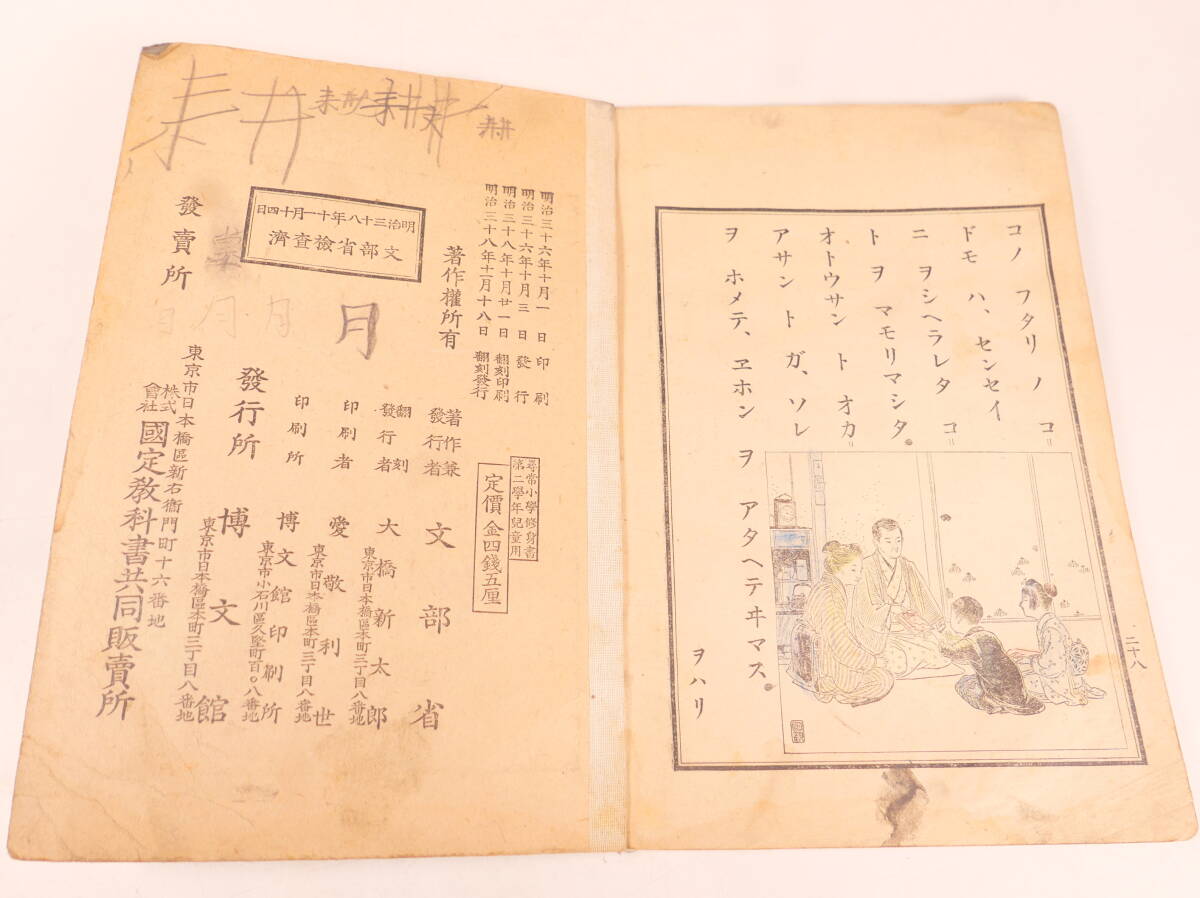 コノ フタリ ノ コ＝
ドモ ハ、センセイ
ニ ヲシヘラレタ コ＝
ト ヲ マモリマシタ。
オトウサン ト オカ＝
アサン ト ガ、ソレ
ヲ ホメテ、ヱホン ヲ アタヘテヰマス。
ヲハリ
二十八
明治三十六年十月一日印刷
明治三十六年十月三日發行
明治三十八年十月廿一日翻刻印刷
明治三十八年十二月十八日翻刻發行
著作權所有
明治三十八年十一月十四日
文部省檢査濟
尋常小學修身書
第二學年兒童用
定價金四錢五厘
著作兼發行者 文部省
東京市日本橋區本町三丁目八番地
翻刻發行者 大橋新太郎
東京市日本橋區本町三丁目八番地
印刷者 愛敬利世
東京市小石川區久堅町百〇八番地
印刷所 博文館印刷所
東京市日本橋區本町三丁目八番地
發行所 博文館
東京市日本橋區新右衞門町十六番地
發賣所 株式會社 國定敎科書共同販賣所
耕
耕
月
月
月